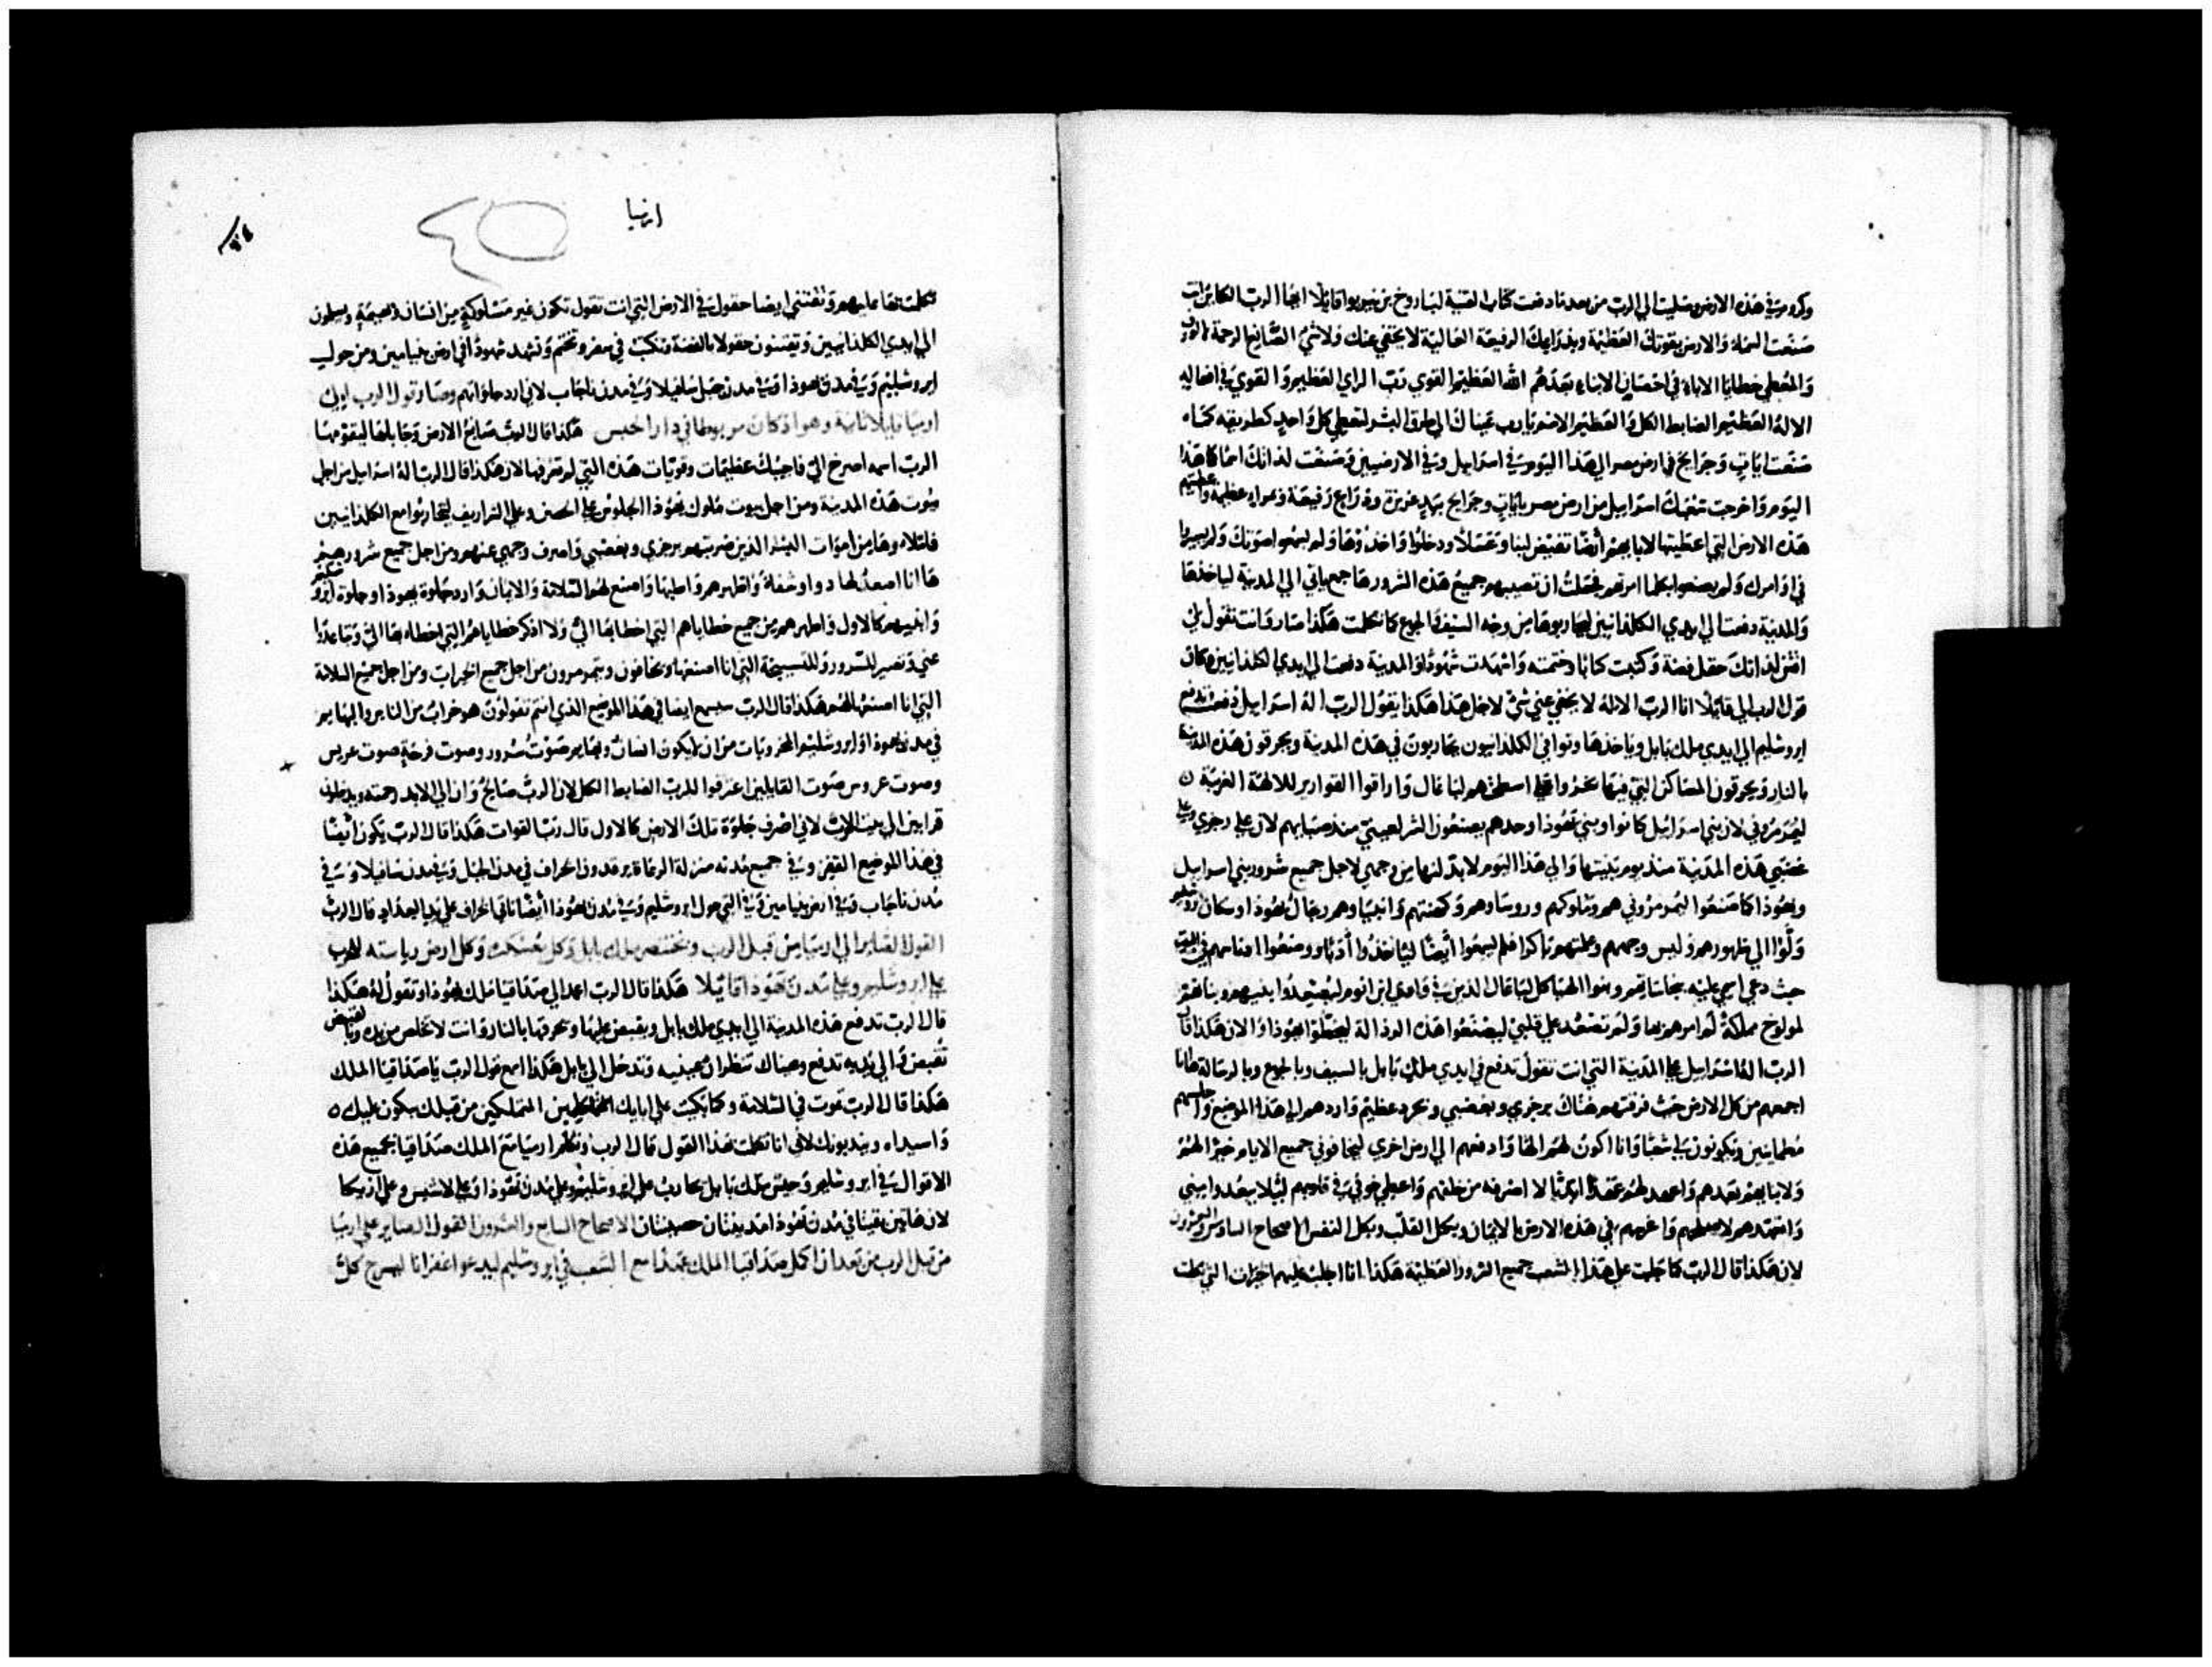 وكروم في هذه الارض وصليت الي الرب من بعد ما دفعت كتاب القنية لباروخ بن نيريوا قايلا ايها الرب الكاين انت
صنعت السماء والارض بقوتك العظيمة وبذراعك الرفيعة العالية لا يخفي عنك ولا شي الصانع الرحمة لالوف
والمعطي خطايا الاباء في احضان الابناء بعدهم الله العظيم القوي رب الراي العظيم والقوي في افعاله
الاله العظيم الضابط الكل والعظيم الاسم يارب عيناك الي طرق البشر لتعطي كل واحد كطريقه كما
صنعت ايات وجرايح في ارض مصر الي هذا اليوم وفي اسراييل وفي الارضيين وصنعت لذاتك اسما كهذا
اليوم واخرجت شعبك اسراييل من ارض مصر بايات وجرايح بيد عزيزة وذراع رفيعة وبمراي عظيمة واعطيتهم
هذه الارض التي اعطيتها لابايهم ارضا تفيض لبنا وعسلا ودخلوا واخذوها ولم يسمعوا صوتك ولم يسيروا
في اوامرك ولم يصنعوا بكلما امرتهم فجعلت ان تصيبهم جميع هذه الشرور ها جمع ياتي الي المدينة لياخذها
والمدينة دفعت الي ايدي الكلدانيين ليحاربوها من وجه السيف والجوع كما تكلمت هكذا صار وانت تقول لي
اقتن لذاتك حقل فضة وكتبت كتابا وختمته واشهدت شهودا والمدينة دفعت الي ايدي الكلدانيين وكان
قول الرب الي قايلا انا الرب الاله لا يخفي عني شي لاجل هذا هكذا يقول الرب اله اسراييل دفعت تدفع
ايروشليم الي ايدي ملك بابل وياخذها وتوافي الكلدانيون يحاربون في هذه المدينة ويحرقون هذه المدينة
بالنار ويحرقون المساكن التي فيها بخروا علي اسطحتهم لباعال واراقوا القوارير للالهة الغريبة
ليمرمروني لان بني اسراييل كانوا وبني يهوذا وحدهم يصنعون الشر لعيني منذ صباهم لان علي رجزي وعلي
غضبي هذه المدينة منذ يوم بنيتها والي هذا اليوم لابدلنها من وجهي لاجل جميع شرور بني اسراييل
ويهوذا كما صنعوا ليمرمروني هم وملوكهم وروساوهم وكهنتهم وانبياوهم رجال يهوذا وسكان ايروشليم
وولوا الي ظهورهم وليس وجههم وعلمتهم باكرا فلم يسمعوا ايضا لياخذوا ادبا وصنعوا
حيث دعي اسمي عليه بنجاساتهم وبنوا الهياكل لباعال الذين في وادي ابن انوم ليصعدوا بنيهم وبناتهم
لمولوخ مملكة لم امرهم بها ولم تصعد علي قلبي ليصنعوا هذه الرذالة ليخطوا يهوذا والان هكذا قال
الرب اله اسراييل علي المدينة التي انت تقول تدفع في ايدي ملك بابل بالسيف وبالجوع وبالرسالة هاانا
اجمعهم من كل الارض حيث فرقتهم هناك برجزي وبغضبي وبحرد عظيم واردهم الي هذا الموضع واجلسهم
مطمانين ويكونون لي شعبا وانا اكون لهم الها وادفعهم الي ارض اخري ليخافوني جميع الايام خيرا لهم
ولابنايهم بعدهم واعهد لهم عهدا ابديا لا اصرفه من خلفهم واعطي خوفي في قلوبهم ليلا يبعدوا مني
واتعهدهم واغرسهم في هذه الارض بالايمان وبكل القلب وبكل النفس الاصحاح السادس والعشرون
لان هكذا قال الرب كما جلبت علي هذا الشعب جميع الشرور العظيمة هكذا انا اجلب عليهم الخيرات التي تكلمت
ارميا
تكلمت بها عليهم وتقتني ايضا حقول في الارض التي انت تقول تكون غير مسلوكة من انسان وبهيمة ويسلمون
الي ايدي الكلدانيين وتقتنون حقولا بالفضة وتكتب في سفر وتختم وتشهد شهودا في ارض بنيامين ومن حول
ايروشليم وفي مدن يهوذا وفي مدن جبل سافيلا وفي مدن ناجاب لاني ارد جلواتهم وصار قول الرب الي
ارميا قايلا ثانية وهو اذ كان مربوطا في دار الحبس هكذا قال الرب صانع الارض وجابلها ليقومها
الرب اسمه اصرخ الي فاجيبك عظيمات وقويات هذه التي لم تعرفها لان هكذا قال الرب اله اسراييل من اجل
بيوت هذه المدينة ومن اجل بيوت ملوك يهوذا الجلوس علي الحصن وعلي التراريف ليتحاربوا مع الكلدانيين
فلتملاوها من اموات البشر الذين ضربتهم برجزي وبغضبي واصرف وجهي عنهم ومن اجل جميع شرورهم
ها انا اصعد لها دوا وشفا واظهرهم واطبها واصنع لهم السلامة والايمان وارد جلوة يهوذا وجلوة ايروشليم
وابنيهم كالاول واطهرهم من جميع خطاياهم التي اخطا بها الي ولا اذكر خطاياهم التي اخطاوا بها الي وتباعدوا
عني وتصير للسرور وللتسبيحة التي انا اصنعها ويخافون ويتمرمرون من اجل جميع الخيرات ومن اجل جميع السلامة
التي انا اصنعها لهم هكذا قال الرب سيسمع ايضا في هذا الموضع الذي انتم تقولون هو خراب من الناس والبهايم
في مدن يهوذا وايروشليم المخروبات من ان لا يكون انسان وبهايم صوت سرور وصوت فرحة صوت عريس
وصوت عروس صوت القايلين اعترفوا للرب الضابط الكل لان الرب صالح وان الي الابد رحمته ويدخلون
قرابين الي بيت الرب لاني اصرف جلوة تلك الارض كالاول قال رب القوات هكذا قال الرب يكون ايضا
في هذا الموضع القفر وفي جميع مدنه منزلة الرعاة يرقدون اخراف في مدن الجبل وفي مدن سافيلا وفي
مدن ناجاب وفي ارض بنيامين وفي التي حول ايروشليم وفي مدن يهوذا ايضا تاتي اخراف علي يد العداد قال الرب
القول الصاير الي ارميا من قبل الرب وبختنصر ملك بابل وكل عسكره وكل ارض رياسته تحارب
علي ايروشليم وعلي مدن يهوذا قايلا هكذا قال الرب امض الي صداقيا ملك يهوذا وتقول له هكذا
قال الرب تدفع هذه المدينة الي ايدي ملك بابل ويقبض عليها ويحرقها بالنار وانت لا تخلص من يده وبالقبض
تقبض والي يديه تدفع وعيناك تنظران عينيه وتدخل الي بابل هكذا اسمع قول الرب ياصداقيا الملك
هكذا قال الرب تموت في السلامة وكما بكيت علي ابايك المتملكين من قبلك يبكون عليك
واسيداه ويندبونك لاني انا تكلمت هذا القول قال الرب وتكلم ارميا مع الملك صداقيا بجميع هذه
الاقوال في ايروشليم وجيش ملك بابل يحارب علي ايروشليم وعلي مدن يهوذا وعلي لاشيس وعلي ازيكا
لان هاتين بقيتا في مدن يهوذا مدينتان حصينتان الاصحاح السابع والعشرون القول الصاير علي ارميا
من قبل الرب من بعد ان اكمل صداقيا الملك عهدا مع الشعب في ايروشليم ليدعوا غفرانا ليسرح كل